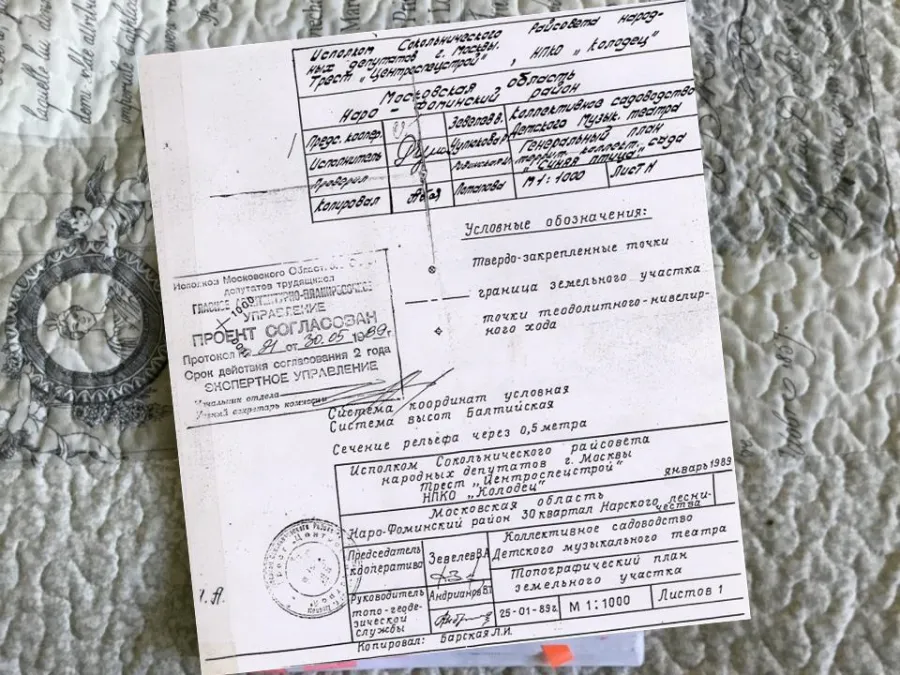 Исполком Сокольнического Райсовета народ-
ных депутатов г. Москвы.
Трест „Центроспецстрой", НПКО „Колодец"
Московская область
Наро-Фоминский район
Предс. коопер.
Зевелев В.
Коллективное садоводство
Исполнитель
Детского Музык. театра
Проверил
Генеральный план
коллект. сада
„Синяя птица"
Копировал
Потапова
М 1:1000
Лист
Условные обозначения:
твердо-закрепленные точки
граница земельного участка
точки теодолитного-нивелир-
ного хода
Исполком Московского Област.
депутатов трудящихся
ГЛАВНОЕ
УПРАВЛЕНИЕ
1:1000
ПРОЕКТ СОГЛАСОВАН
Протокол № 21 от 30.05 1989 г.
Срок действия согласования 2 года
ЭКСПЕРТНОЕ УПРАВЛЕНИЕ
Начальник отдела
секретарь комиссии
Система координат условная
Система высот Балтийская
Сечение рельефа через 0,5 метра
Исполком Сокольнического райсовета
народных депутатов г. Москвы
Трест „Центроспецстрой"
НПКО „Колодец"
январь 1989
Московская область
Наро-Фоминский район 30 квартал Нарского лесни-
чества
Председатель
кооператива
Зевелев В.А.
Коллективное садоводство
Детского музыкального театра
Руководитель
топо-геоде-
зической
службы
Андрианов В.
Топографический план
земельного участка
25-01-89г.
М 1:1000
Листов 1
Копировал: Барская Л.И.